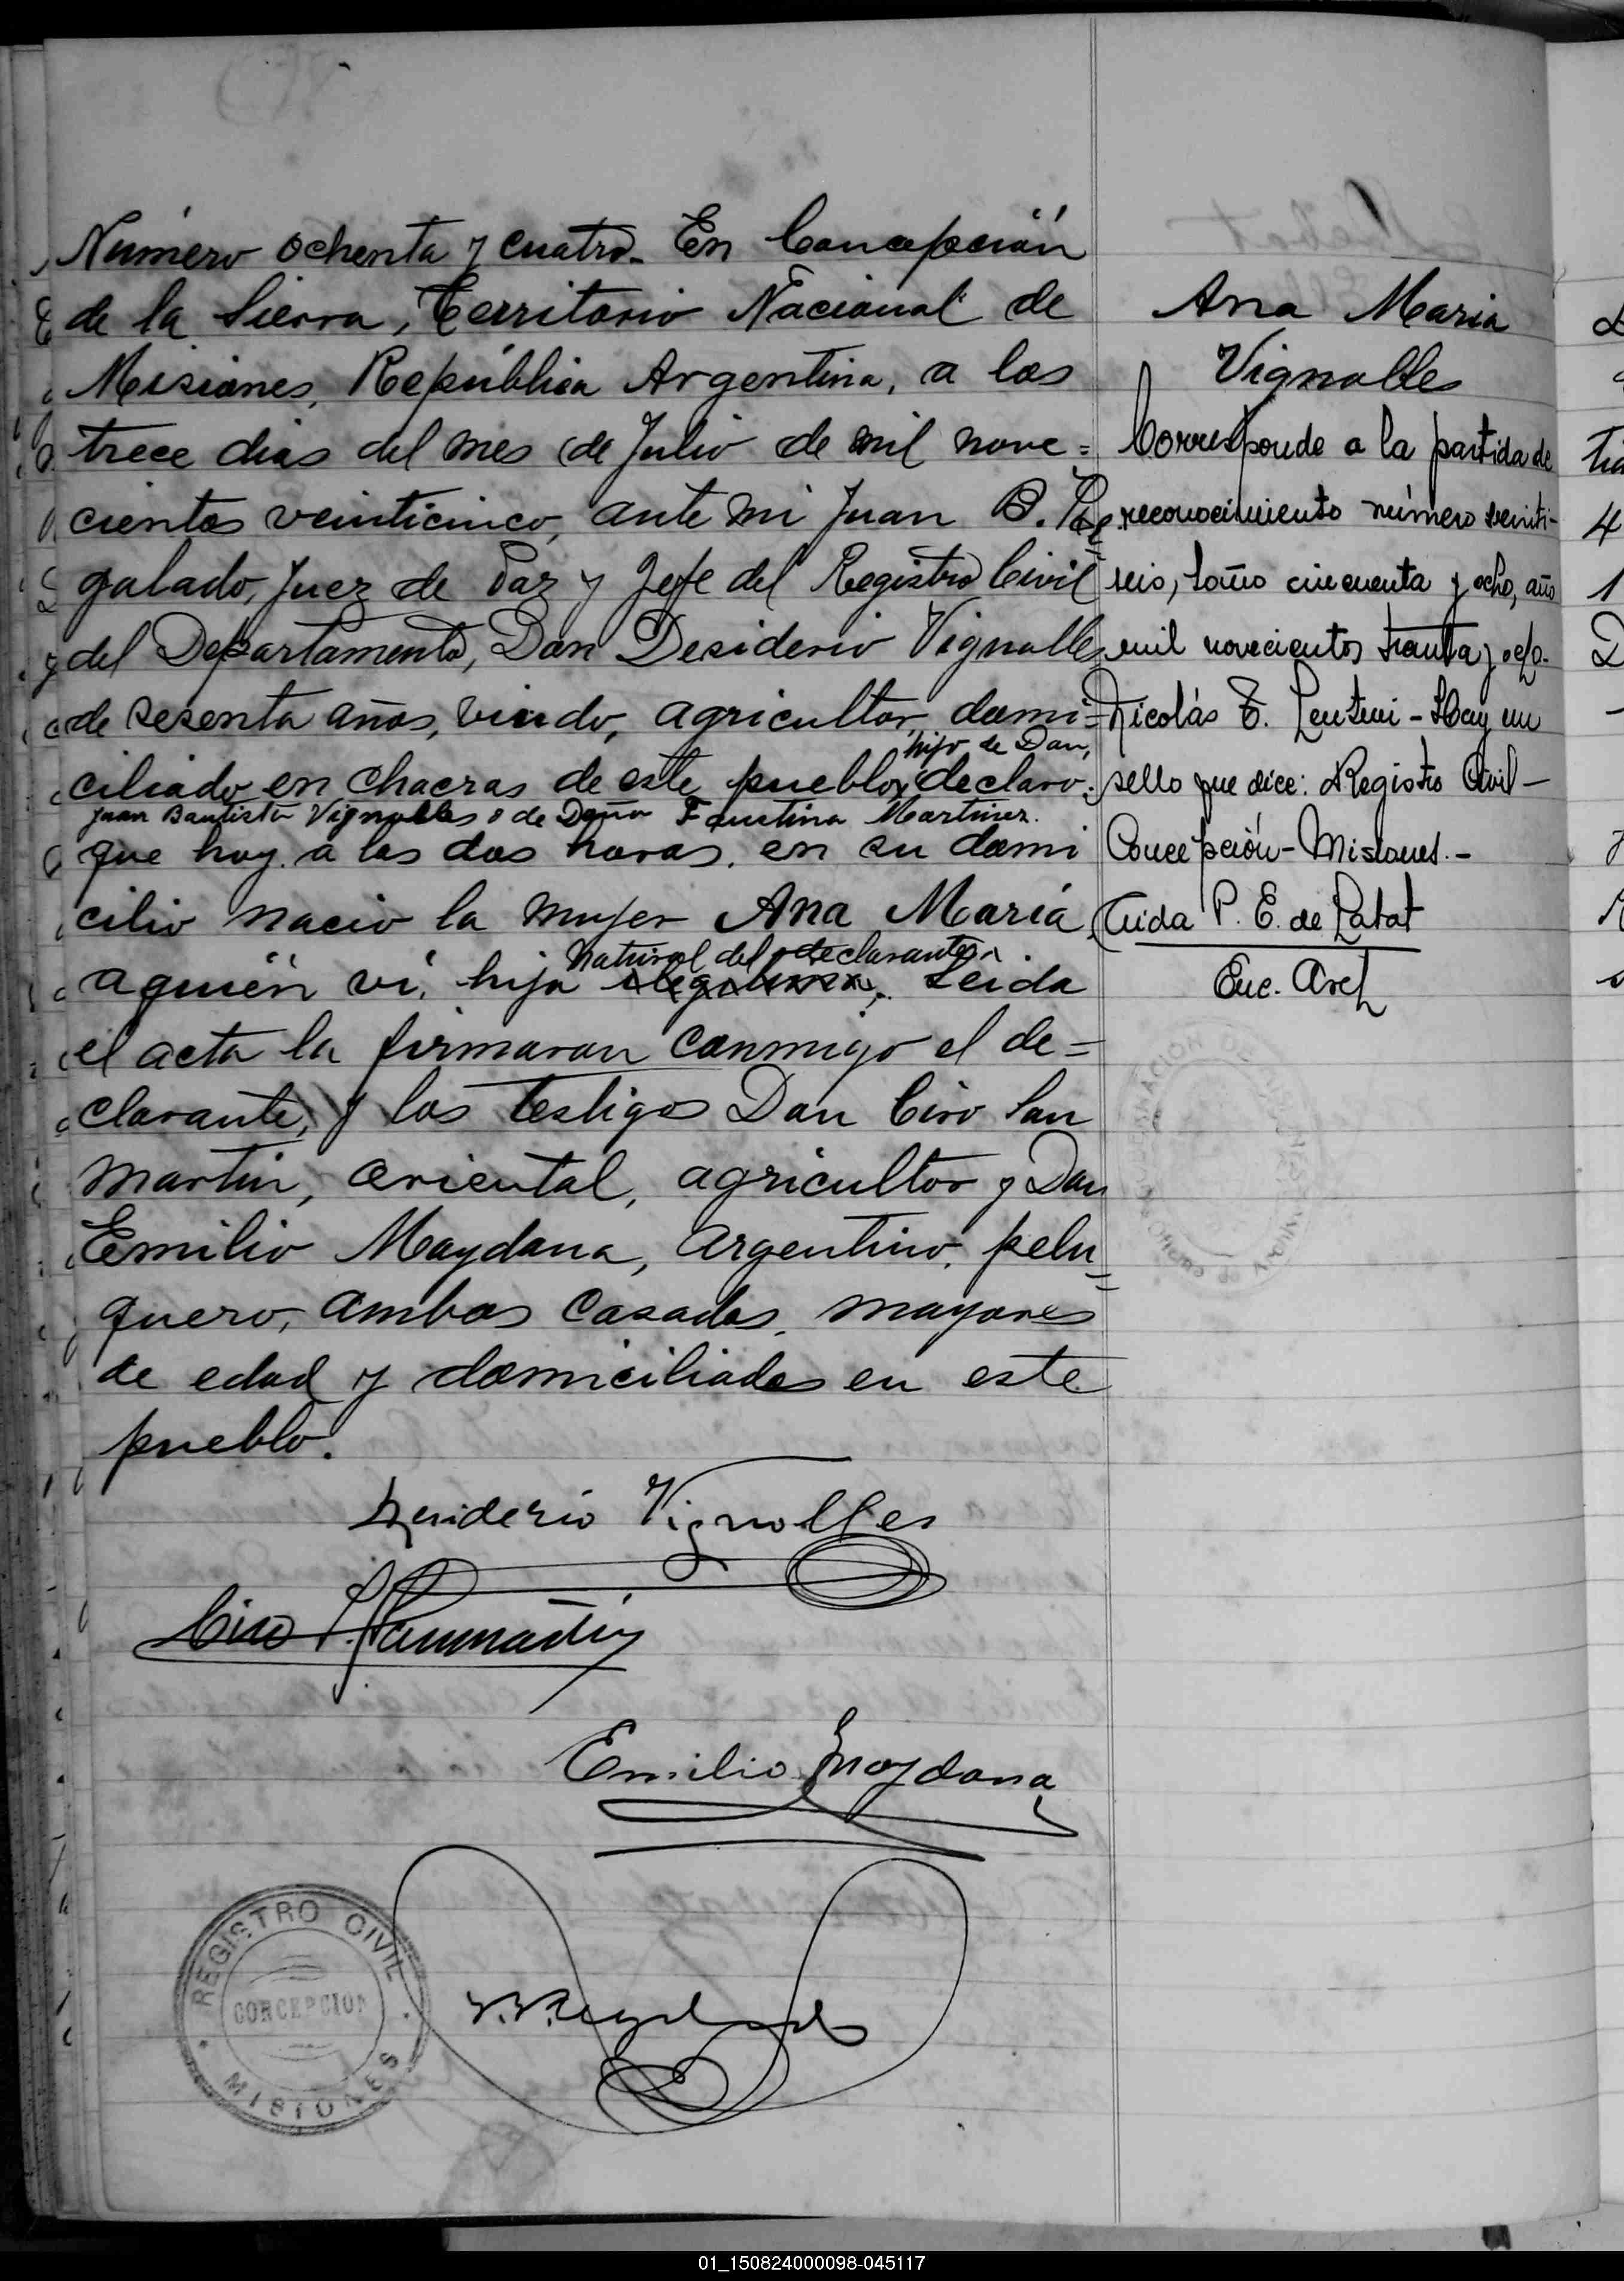 Número ochenta y cuatro. En Concepción
de la Sierra, Territorio Nacional de
Misiones, República Argentina, a los
trece dias del mes de Julio de mil nove=
cientos veinticinco, ante mi Juan B. Re=
galado, Juez de Paz y Jefe del Registro Civil
del Departamento, Don Desiderio Vignolles
de sesenta años, viudo, agricultor, domi=
hijo de Don,
ciliado en chacras de este pueblo, declaro:
Juan Bautista Vignolles y de Doña Faustina Martinez.
que hoy a las dos horas, en su domi
cilio nacio la mujer Ana María,
natural del declarante,
aquién vi, hija Leida
el acta la firmaron conmigo el de=
clarante, y los testigos Don Ciro San
martin, oriental, agricultor y Don
Emilio Maydana, argentino, pelu=
quero, ambos casados, mayores
de edad y domiciliados en este
pueblo.
Desiderio Vignolles
Ciro Sanmartin
Emilio Maydana
REGISTRO CIVIL
CONCEPCION
MISIONES
Ana Maria
Vignolles
Corresponde a la partida de
reconocimiento número veinti-
seis, tomo cincuenta y ocho, año
mil novecientos treinta y ocho.
Nicolás T. Lentini - Hay un
sello que dice: Registro Civil -
Concepción - Misiones. -
Aida P. E. de
Enc. Arch
01_150824000098-045117